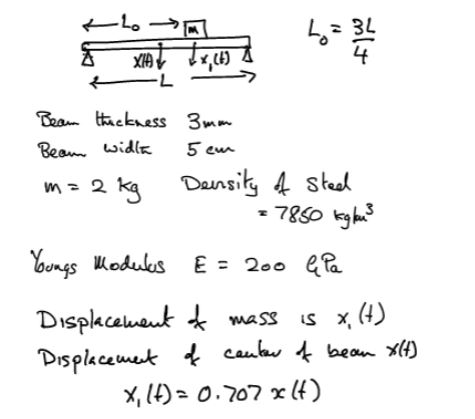 L₀
m
L₀ = 3L/4
x(t) x₁(t)
L
Beam thickness 3mm
Beam width 5 cm
m = 2 kg Density of Steel
= 7850 kg/m³
Youngs Modulus E = 200 GPa
Displacement of mass is x₁(t)
Displacement of center of beam x(t)
x₁(t) = 0.707 x(t)